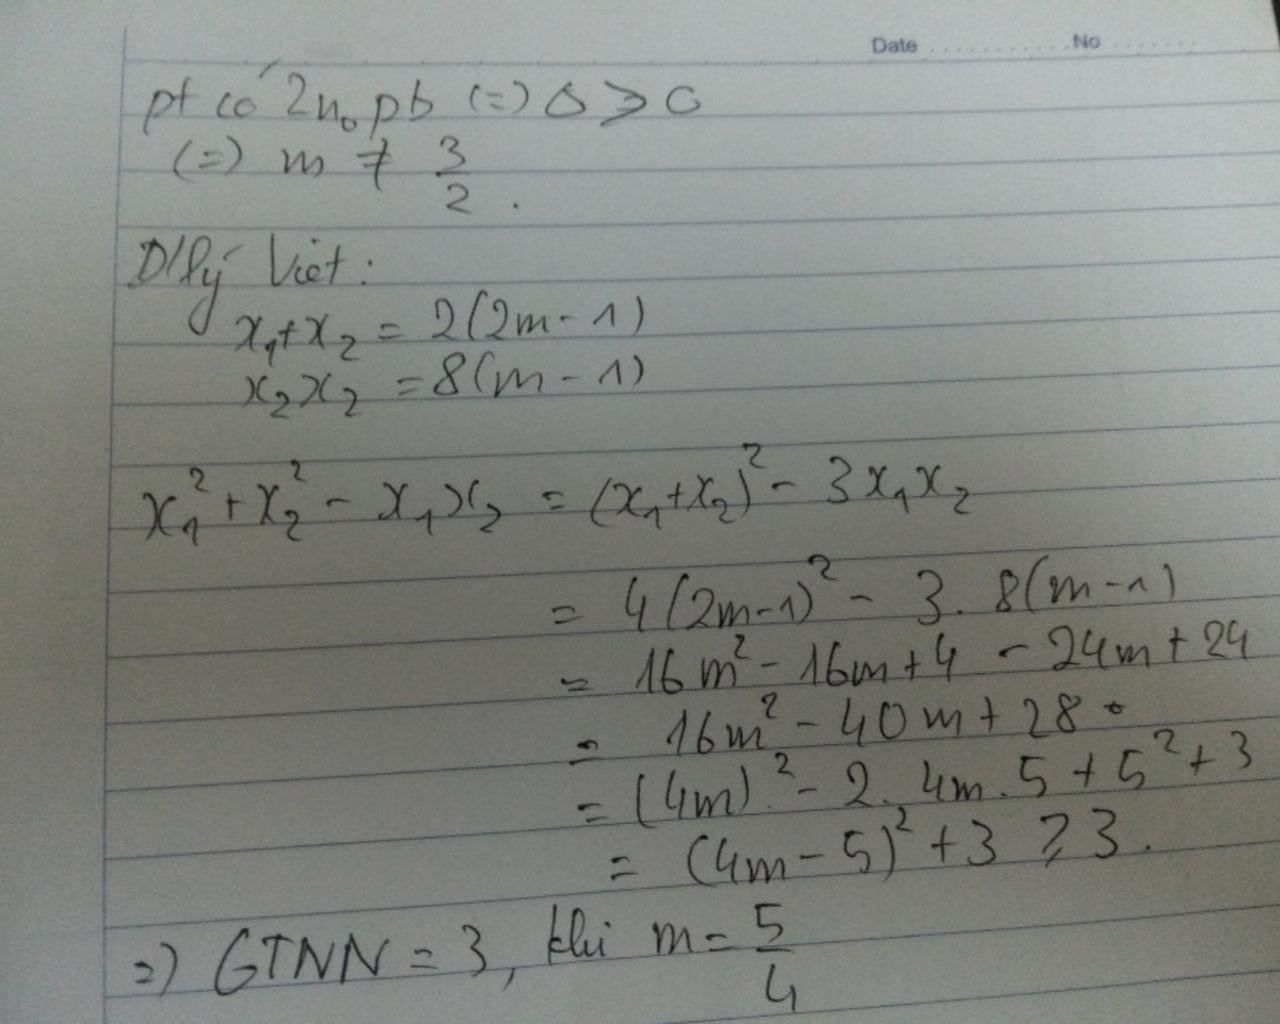 Date No
pt có 2 no pb (=) Δ > 0
(=) m ≠ 3/2 .
Đ/lý Viet :
x₁+x₂ = 2(2m-1)
x₂x₂ = 8(m-1)
x₁² + x₂² - x₁x₂ = (x₁+x₂)² - 3x₁x₂
= 4(2m-1)² - 3. 8(m-1)
= 16m² - 16m + 4 - 24m + 24
= 16m² - 40m + 28 .
= (4m)² - 2. 4m. 5 + 5² + 3
= (4m - 5)² + 3 ≥ 3.
=) GTNN = 3, khi m = 5/4